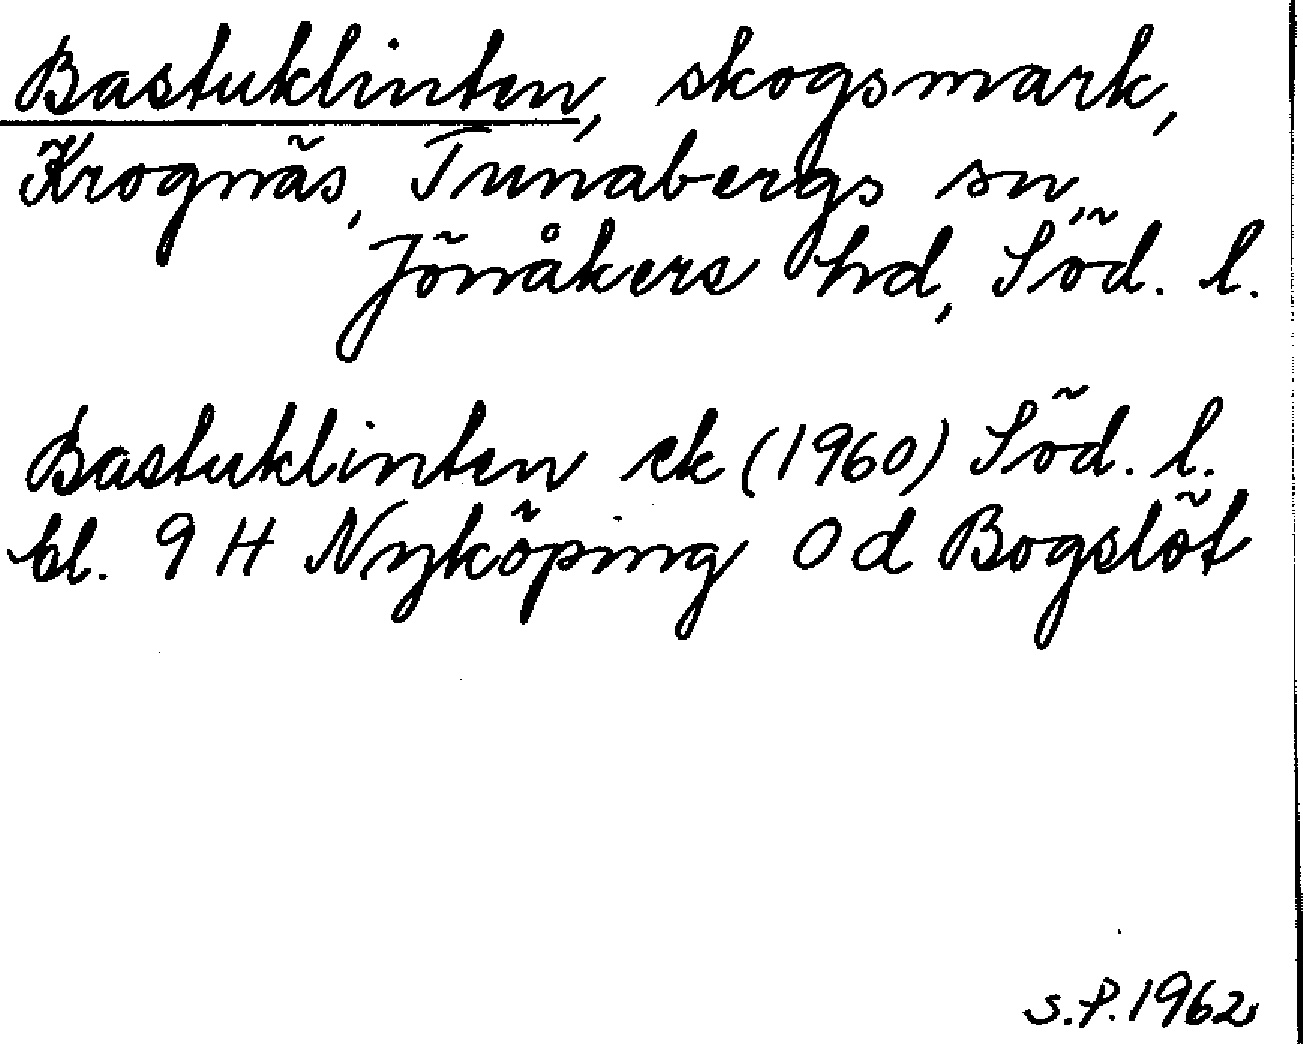 Bastuklinten, skogsmark,
Krognäs, Tunabergs sn,
Jönåkers hd, Söd. l.
Bastuklinten ek (1960) Söd. l.
bl. 9 H Nyköping 0 d Bogslöt
S.P. 1962